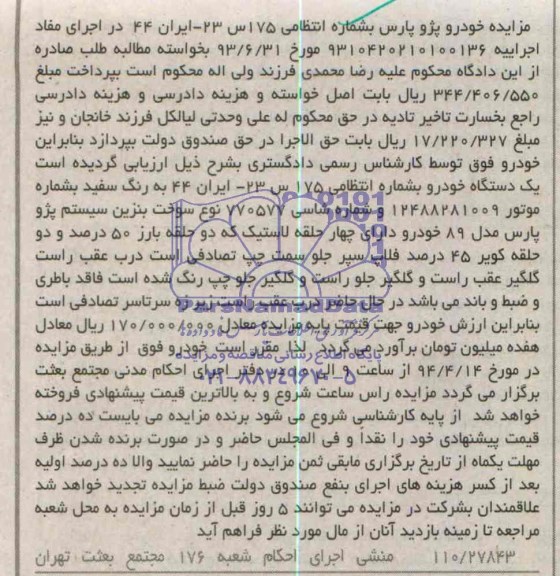 مزایده خودرو پژو پارس بشماره انتظامی ۱۷۵س ۲۳-ایران ۴۴ در اجرای مفاد
اجراییه ۹۳۱۰۴۲۰۲۱۰۱۰۰۱۳۶ مورخ ۹۳/۶/۳۱ بخواسته مطالبه طلب صادره
از این دادگاه محکوم علیه رضا محمدی فرزند ولی اله محکوم است بپرداخت مبلغ
۳۴۴/۴۰۶/۵۵۰ ریال بابت اصل خواسته و هزینه دادرسی و هزینه دادرسی
راجع بخسارت تاخیر تادیه در حق محکوم له علی وحدتی لیالکل فرزند خانجان و نیز
مبلغ ۱۷/۲۲۰/۳۲۷ ریال بابت حق الاجرا در حق صندوق دولت بپردازد بنابراین
خودرو فوق توسط کارشناس رسمی دادگستری بشرح ذیل ارزیابی گردیده است
یک دستگاه خودرو بشماره انتظامی ۱۷۵ س ۲۳- ایران ۴۴ به رنگ سفید بشماره
موتور ۱۲۴۸۸۲۸۱۰۰۹ و شماره شاسی ۷۷۰۵۷۷ نوع سوخت بنزین سیستم پژو
پارس مدل ۸۹ خودرو دارای چهار حلقه لاستیک که دو حلقه بارز ۵۰ درصد و دو
حلقه کویر ۴۵ درصد فلاپ سپر جلو سمت چپ تصادفی است درب عقب راست
گلگیر عقب راست و گلگیر جلو راست و گلگیر جلو چپ رنگ شده است فاقد باطری
و ضبط و باند می باشد در حال حاضر درب عقب راست زیر زه سرتاسر تصادفی است
بنابراین ارزش خودرو جهت قیمت پایه مزایده معادل ۱۷۰/۰۰۰/۰۰۰ ریال معادل
هفده میلیون تومان برآورد می گردد لذا مقرر است خودرو فوق از طریق مزایده
در مورخ ۹۴/۴/۱۴ از ساعت ۹ الی در دفتر اجرای احکام مدنی مجتمع بعثت
برگزار می گردد مزایده راس ساعت شروع و به بالاترین قیمت پیشنهادی فروخته
خواهد شد از پایه کارشناسی شروع می شود برنده مزایده می بایست ده درصد
قیمت پیشنهادی خود را نقدا و فی المجلس حاضر و در صورت برنده شدن ظرف
مهلت یکماه از تاریخ برگزاری مابقی ثمن مزایده را حاضر نمایید والا ده درصد اولیه
بعد از کسر هزینه های اجرای بنفع صندوق دولت ضبط مزایده تجدید خواهد شد
علاقمندان بشرکت در مزایده می توانند ۵ روز قبل از زمان مزایده به محل شعبه
مراجعه تا زمینه بازدید آنان از مال مورد نظر فراهم آید
۱۱۰/۲۷۸۴۳ منشی اجرای احکام شعبه ۱۷۶ مجتمع بعثت تهران
ParsNamadData
پایگاه اطلاع رسانی مناقصه و مزایده
۰۲۱-۸۸۳۴۹۶۷۰-۵